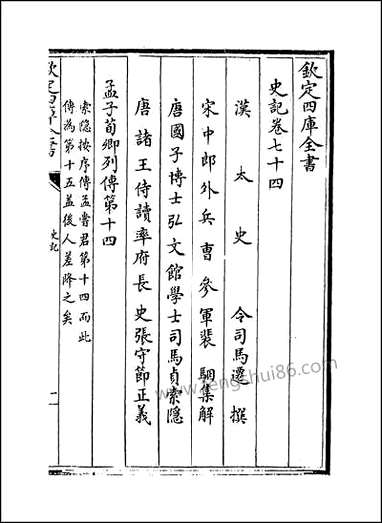 欽定四庫全書
史記卷七十四
漢太史令司馬遷撰
宋中郎外兵曹參軍裴駰集解
唐國子博士弘文館學士司馬貞索隱
唐諸王侍讀率府長史張守節正義
孟子荀卿列傳第十四
索隱按序傳孟嘗君第十四而此
傳為第十五蓋後人差降之矣
欽定四庫全書
史記
一
www.fengshui86.com